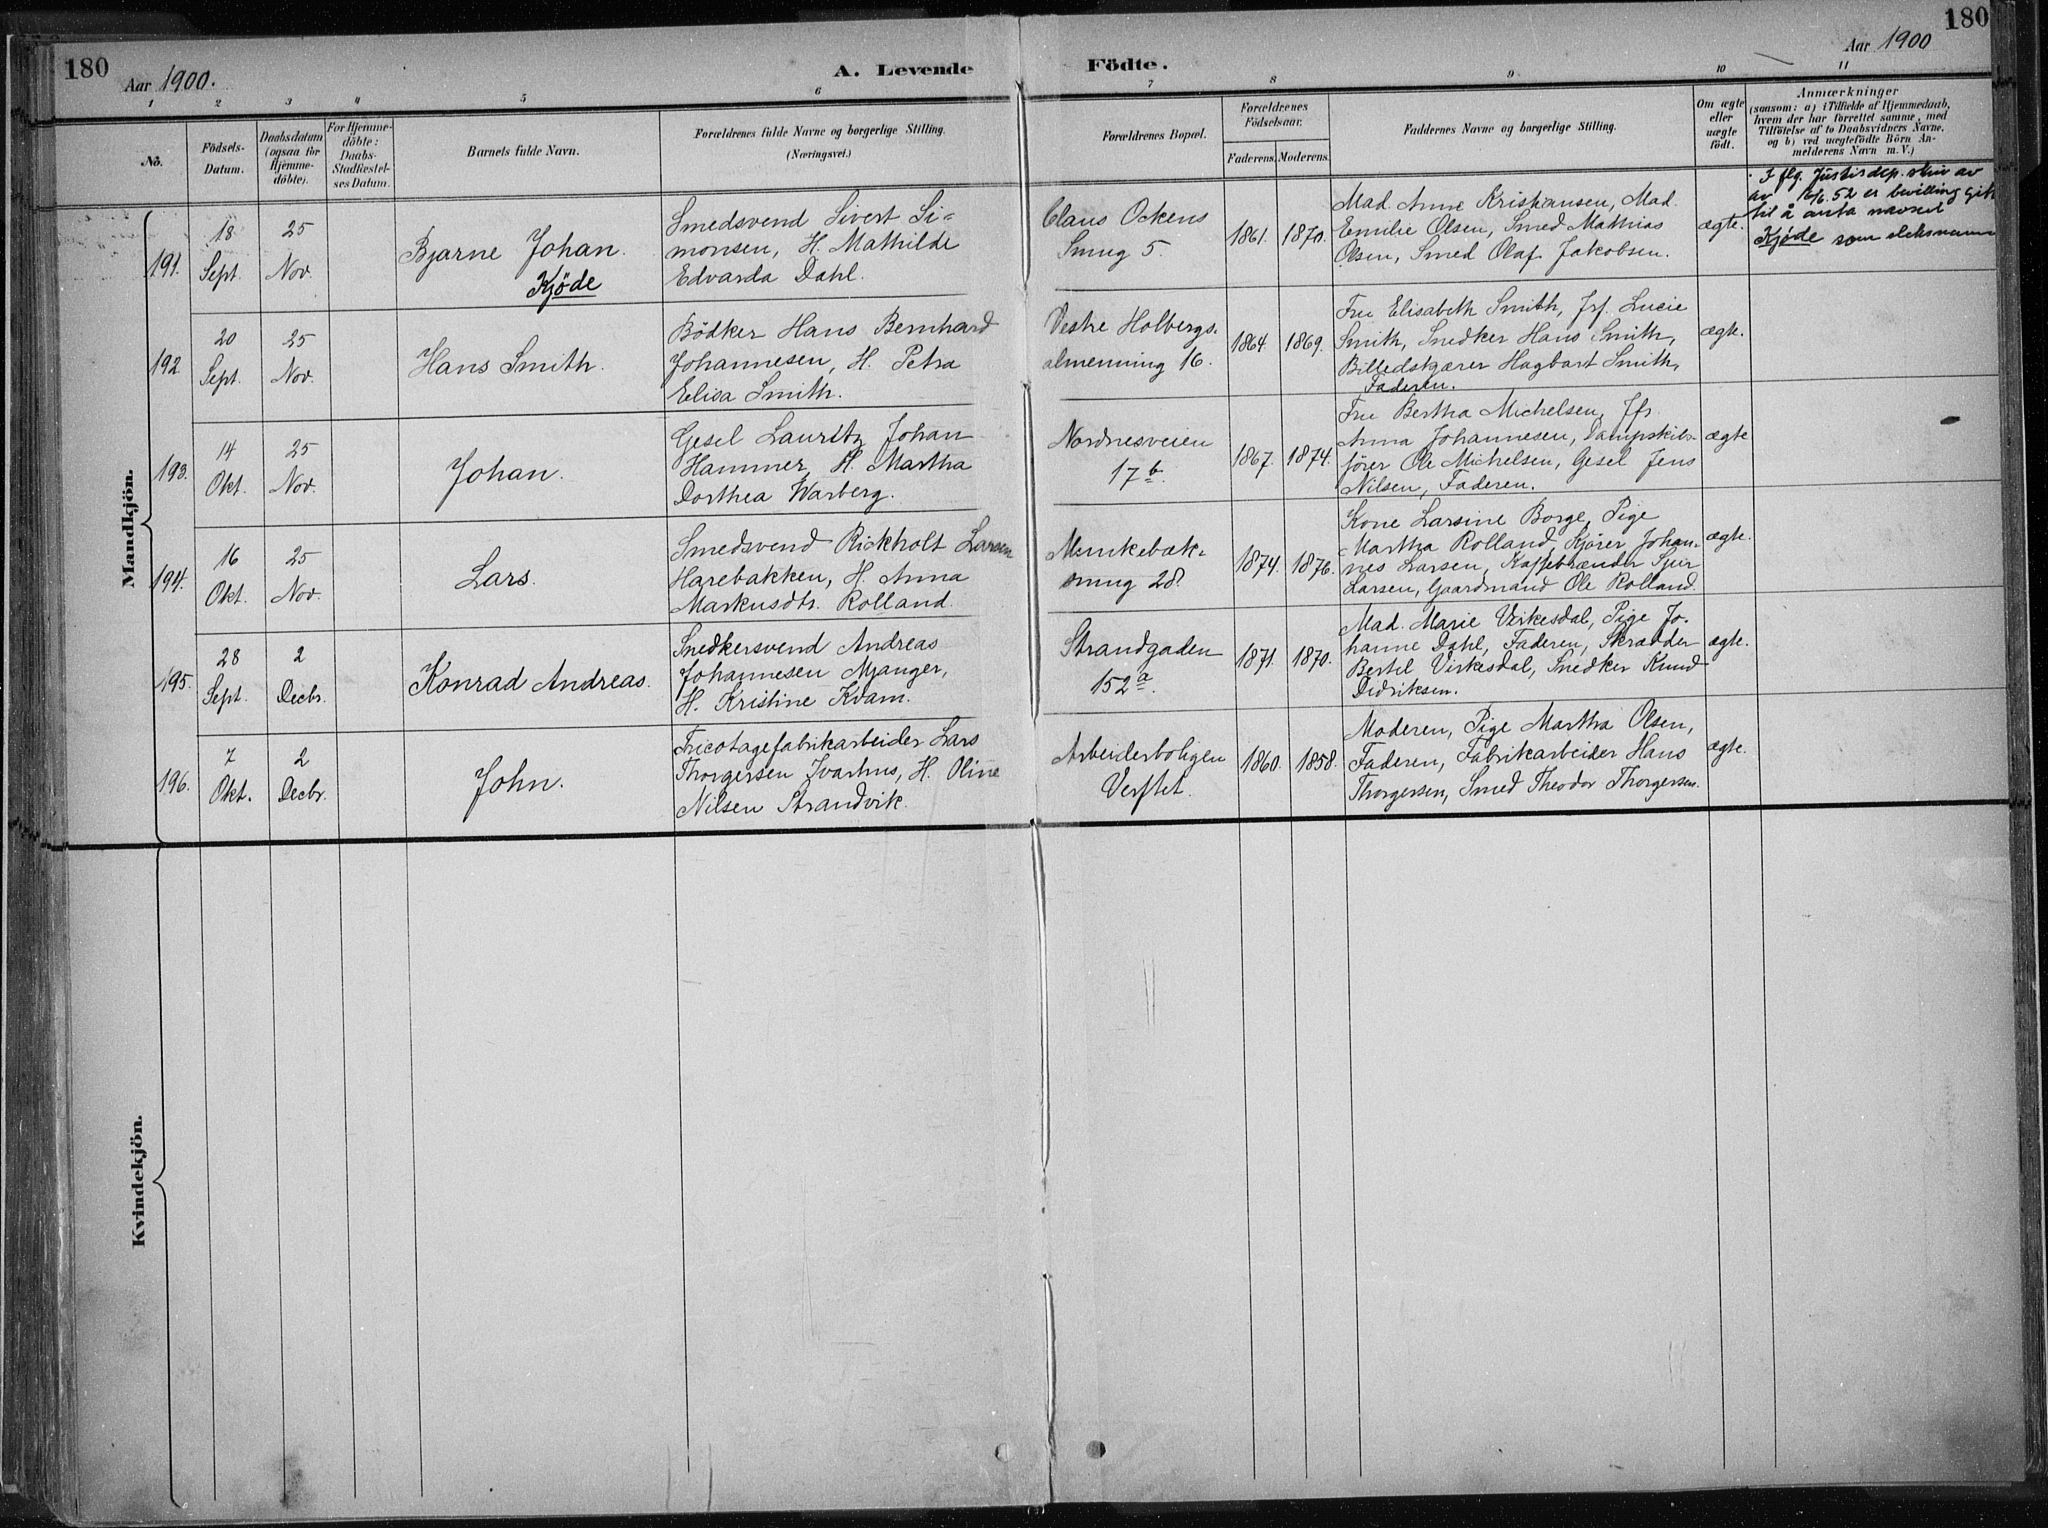 180
Aar 1900.
A. Levende Födte.
Aar 1900
180
1 2 3 4 5 6 7 8 9 10 11
No.
Födsels-
Datum.
Daabsdatum
(ogsaa for
Hjemme-
döbte).
For Hjemme-
döbte:
Daabs-
Stadfæstel-
ses Datum.
Barnets fulde Navn.
Forældrenes fulde Navne og borgerlige Stilling.
(Næringsvei.)
Forældrenes Bopæl.
Forældrenes
Födselsaar.
Faderens. Moderens.
Faddernes Navne og borgerlige Stilling.
Om ægte
eller
uægte
födt.
Anmærkninger
(saasom: a) i Tilfælde af Hjemmedaab,
hvem der har forrettet samme, med
Tilföielse af to Daabsvidners Navne,
og b) ved uægtefödte Börn An-
melderens Navn m. V.)
Mandkjön.
191.
18
Sept.
25
Nov.
Bjarne Johan.
Kjøde
Smedsvend Sivert Si-
monsen, H. Mathilde
Edvarda Dahl.
Claus Ockens
Smug 5.
1861. 1870.
Mad. Anne Kristiansen, Mad.
Emilie Olsen, Smed Mathias
Olsen, Smed Olaf Jakobsen.
ægte.
I flg. Justisdep. skriv av
av 16/6.52 er bevilling gitt
til å anta navnet
Kjøde som sleksnavn
192
20
Sept.
25
Nov.
Hans Smith.
Bödker Hans Bernhard
Johannesen, H. Petra
Elisa Smith.
Vestre Holbergs-
almenning 16.
1864 1869.
Fru Elisabeth Smith, Jrf. Lucie
Smith, Snedker Hans Smith,
Billedskjærer Hagbart Smith,
Faderen.
ægte.
193.
14
Okt.
25
Nov.
Johan.
Gesel Lauritz Johan
Hammer, H. Martha
Dorthea Warberg.
Nordnesveien
17b.
1867. 1874.
Fru Bertha Michelsen, Jfr.
Anna Johannesen, Dampskibs-
förer Ole Michelsen, Gesel Jens
Nilsen, Faderen.
ægte
194.
16
Okt.
25
Nov.
Lars.
Smedsvend Rickholt Larsen
Harebakken, H. Anna
Markusdtr. Rolland.
Munkebæk-
smug 28.
1874. 1876.
Kone Larsine Borge, Pige
Martha Rolland, Kjörer Johan-
nes Larsen, Kaffebrænder Sjur
Larsen, Gaardmand Ole Rolland.
ægte.
195.
28
Sept.
2
Decbr.
Konrad Andreas.
Snedkersvend Andreas
Johannesen Mjanger,
H. Kristine Kvam.
Strandgaden
152a.
1871. 1870.
Mad. Marie Virkesdal, Pige Jo-
hanne Dahl, Faderen, Skrædder
Bertel Virkesdal, Snedker Knud
Didriksen.
ægte.
196.
7
Okt.
2
Decbr.
John.
Tricotagefabrikarbeider Lars
Thorgersen Ivarhus, H. Oline
Nilsen Strandvik.
Arbeiderboligen
Verftet.
1860. 1858.
Moderen, Pige Martha Olsen,
Faderen, Fabrikarbeider Hans
Thorgersen, Smed Theodor Thorgersen.
ægte.
Kvindekjön.